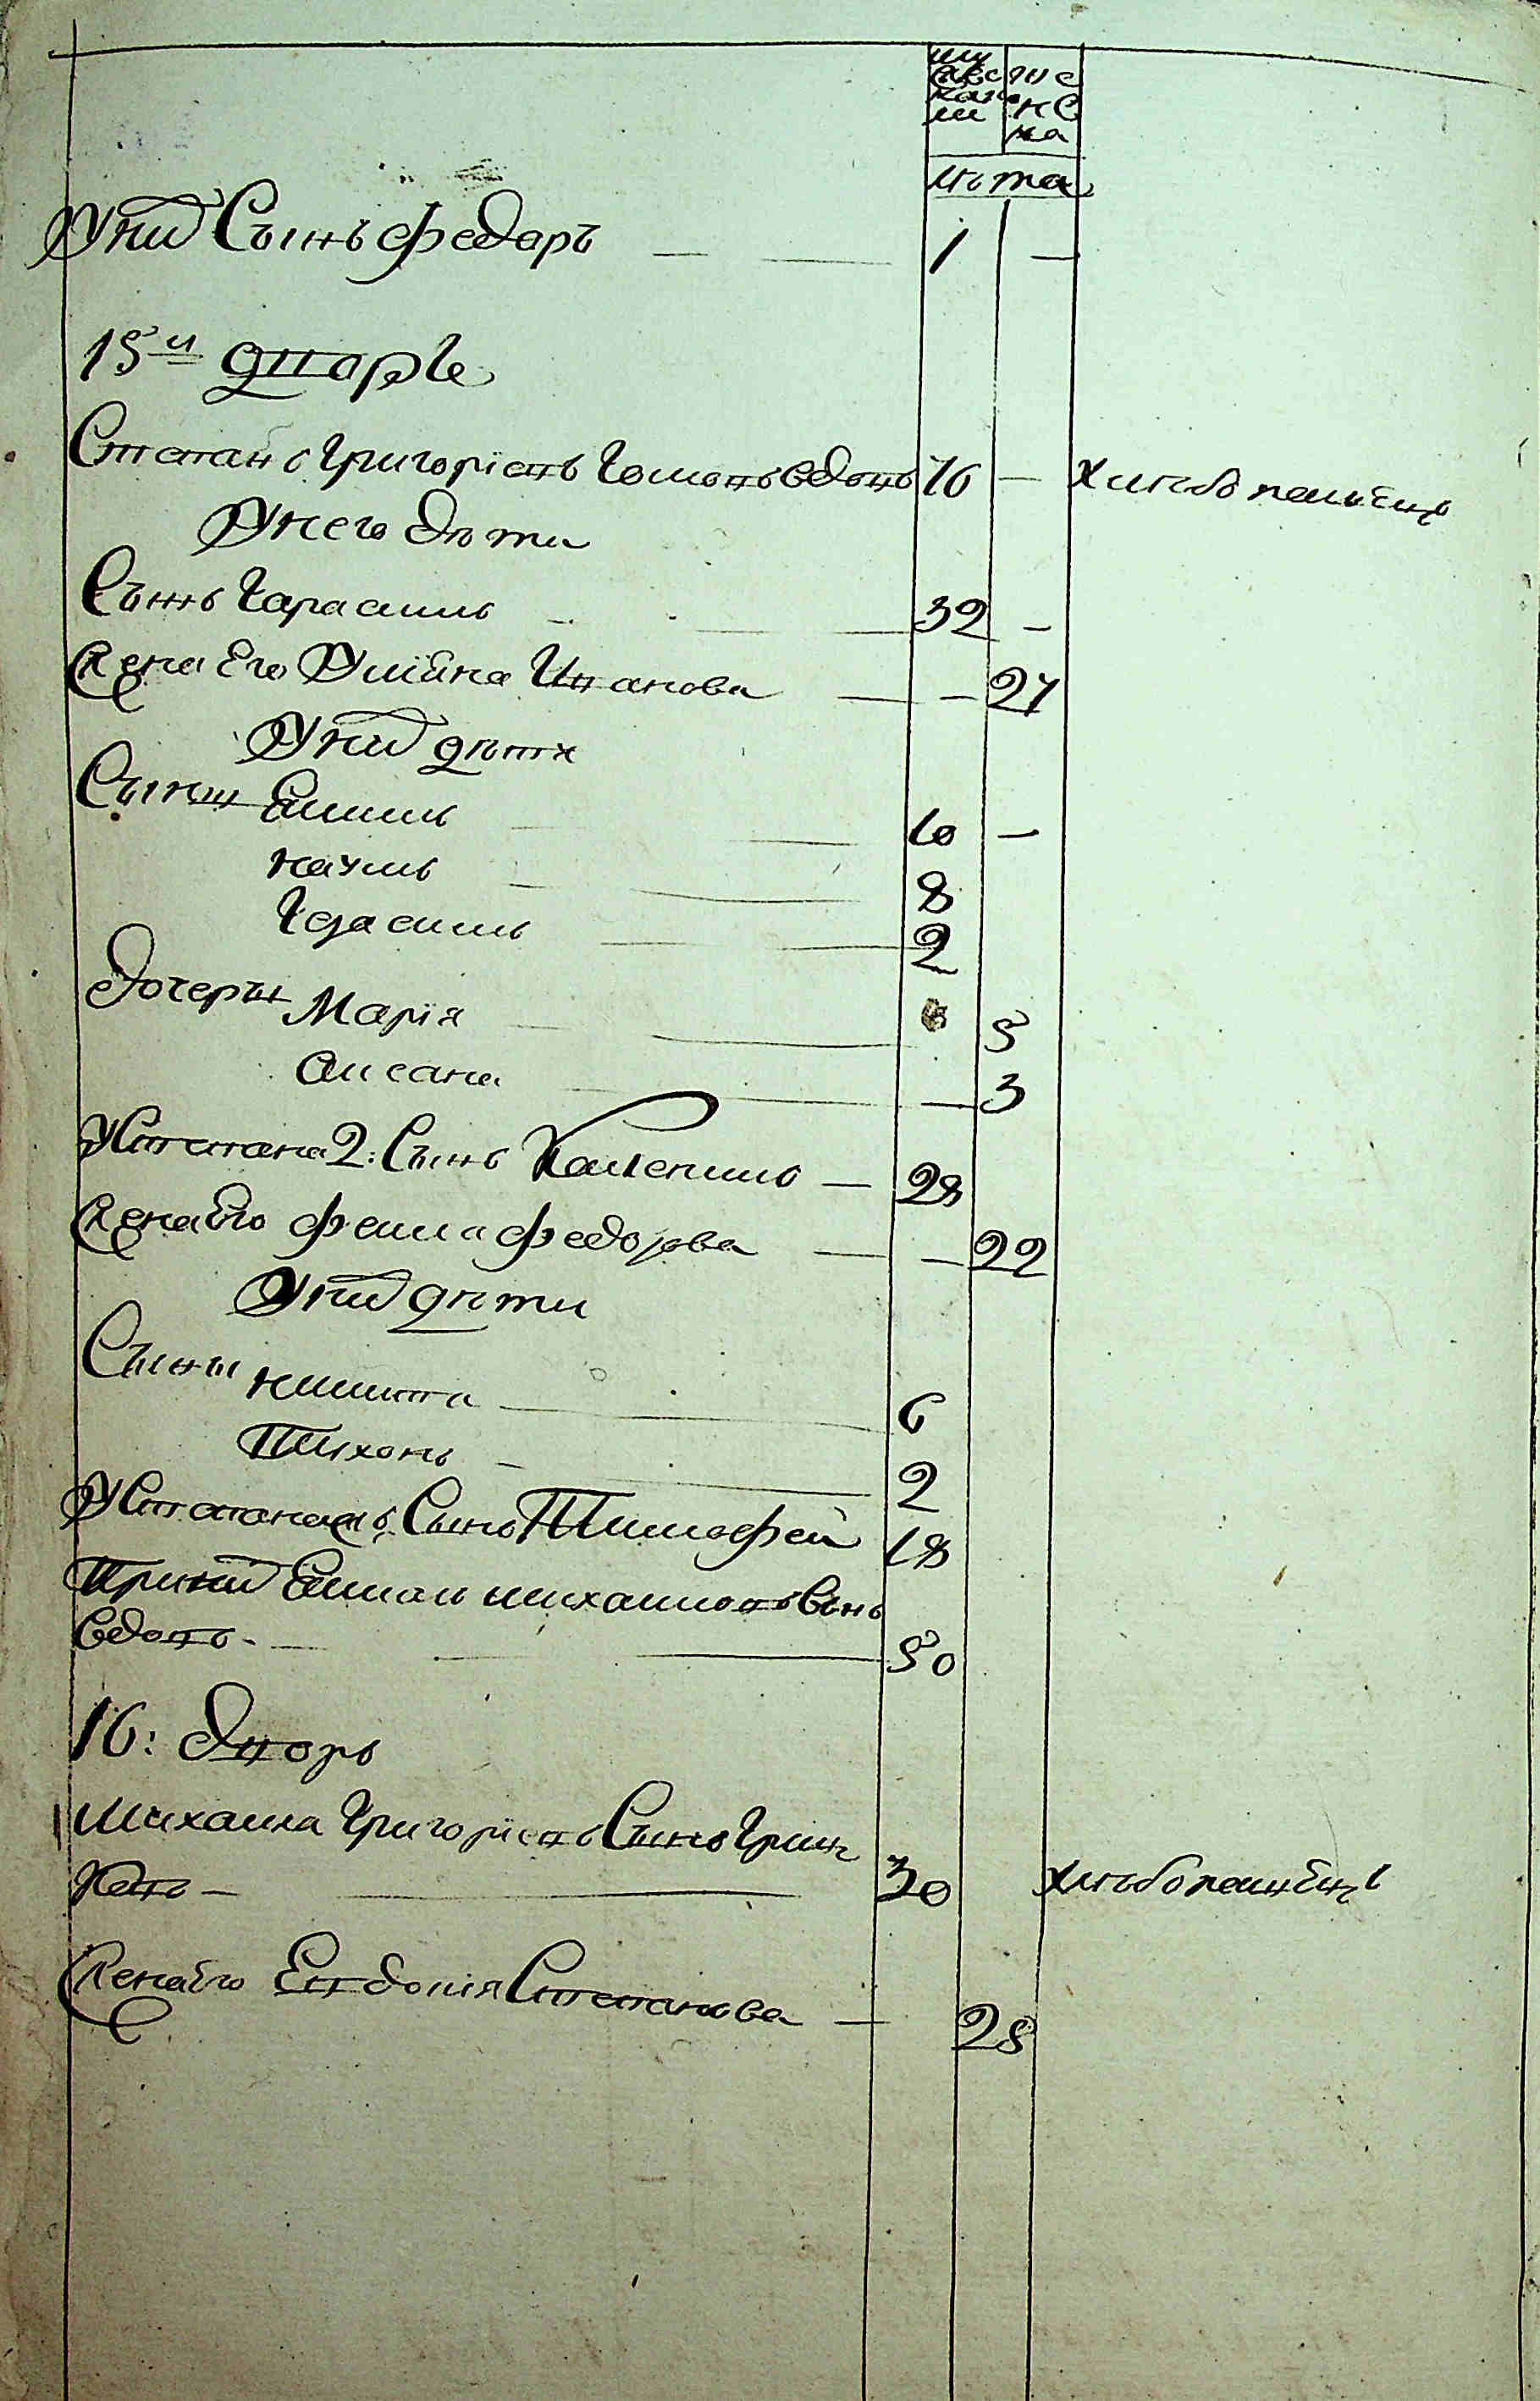 му
жеска
го
же
нска
лѣта
У них Сынъ Федоръ — — 1 —
15й дворъ
Степанъ Григориевъ Сынъ вдовъ 76 — хлѣбопашецъ
У него дѣти
Сынъ Гарасимъ — 32 —
Жена Его Улияна Иванова — — 27
У них дѣти
Сыны Емилъ — 10 —
Наумъ — 8
Герасимъ — 2
дочеры Мария — 5
Оксана — — 3
У Степана 2: Сынъ Каленикъ — 28
Жена Его Фекла Федорова — — 22
У них дѣти
Сыны Никита — 6
Тихонъ — 2
У Степана Сынъ Тимофей 18
При них Емилъ Михайловъ Сынъ
вдовъ — 50
16: дворъ
Михайла Григориевъ Сынъ
30 хлѣбопашецъ
Жена Его Евдокия Степанова — 28